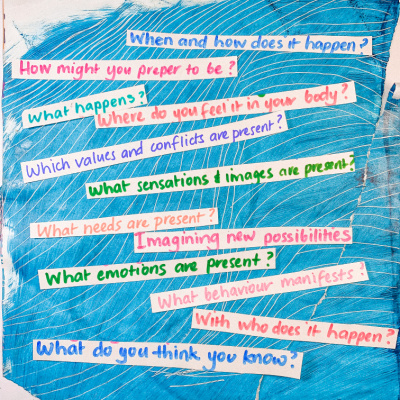 When and how does it happen?
How might you preper to be?
What happens?
Where do you feel it in your body?
Which values and conflicts are present?
What sensations & images are present?
What needs are present?
Imagining new possibilities
What emotions are present?
What behaviour manifests?
With who does it happen?
What do you think you know?